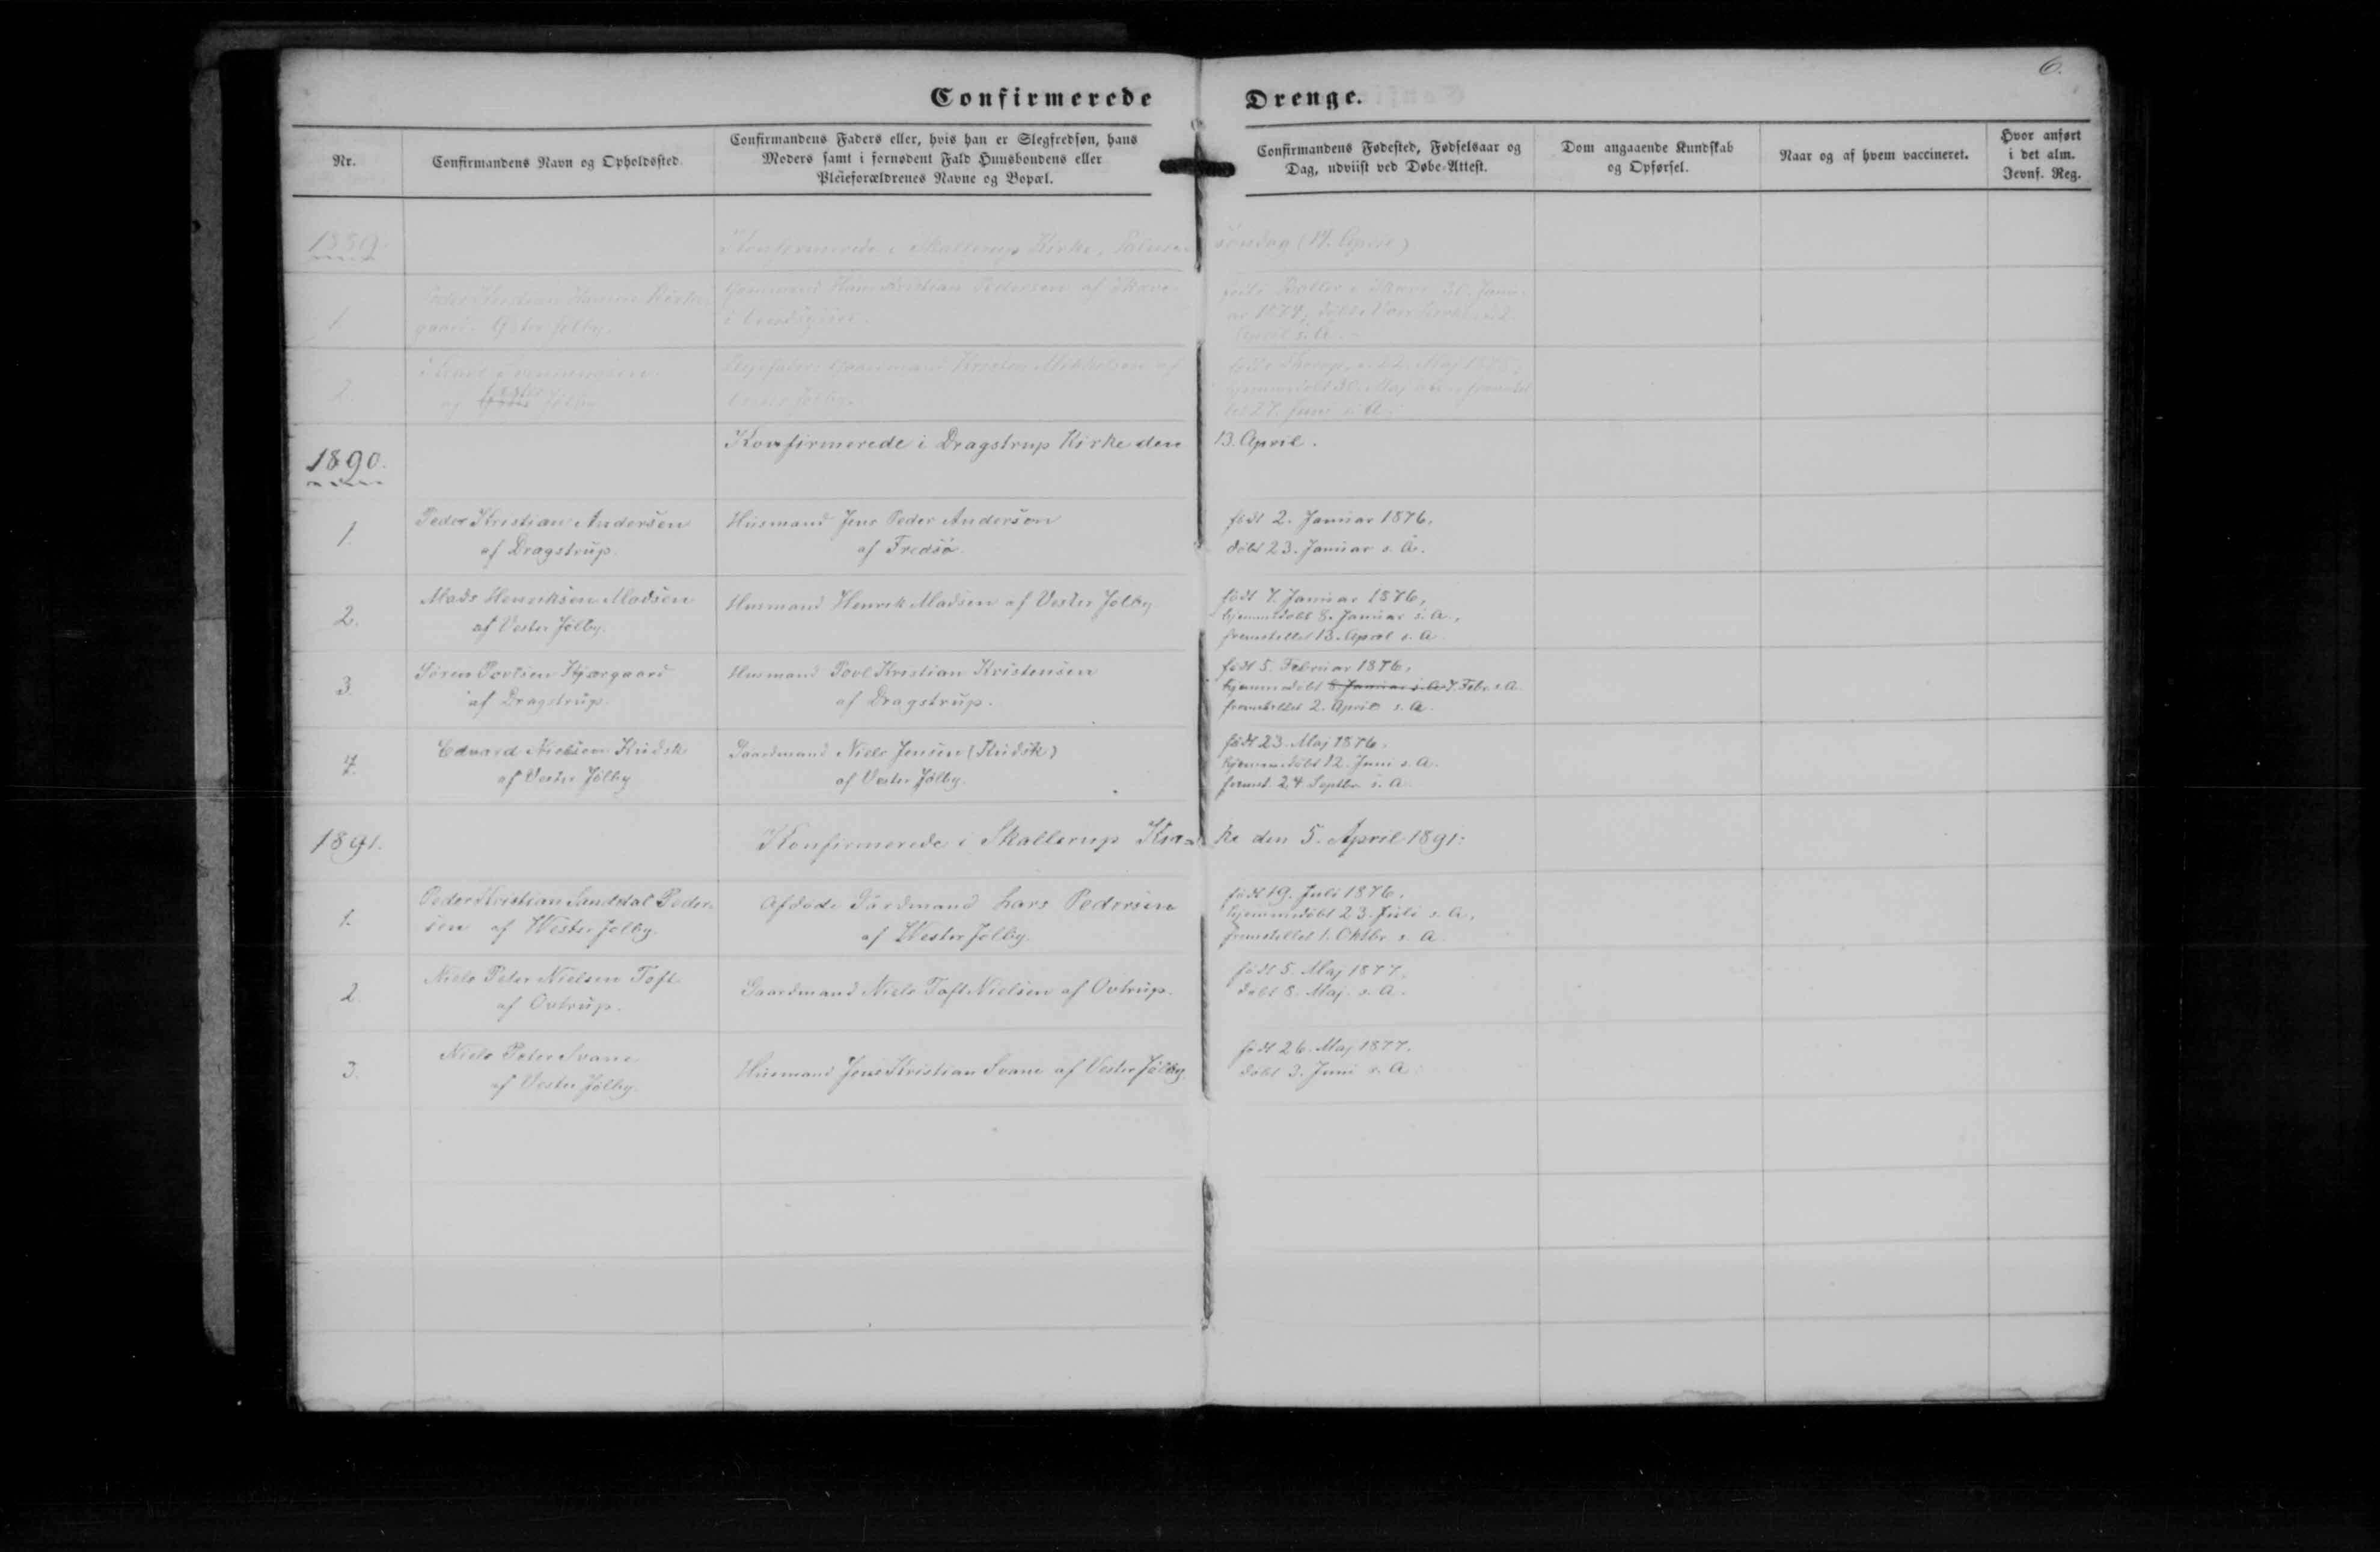 6.
Confirmerede Drenge.
Nr.
Confirmandens Navn og Opholdssted.
Confirmandens Faders eller, hvis han er Slegfredsøn, hans
Moders samt i fornødent Fald Huusbondens eller
Pleieforældrenes Navne og Bopæl.
Confirmandens Fødested, Fødselsaar og
Dag, udviist ved Døbe-Attest.
Dom angaaende Kundskab
og Opførsel.
Naar og af hvem vaccineret.
Hvor anført
i det alm.
Jevnf. Reg.
1889.
Konfirmerede i Skallerup Kirke, Palme-
søndag (14. April)
1.
Peder Kristian Hansen
gaard. Øster Jølby.
Gaardmand Hans Kristian Pedersen af
i
født i
ar 1874, døbt i
April s. A.
2.
af Vester Jølby
Plejefader: Gaardmand Kristen Mikkelsen af
Vester Jølby.
født i 22. Maj 1875,
hjemmedøbt 30. Maj
27. Juni s. A.
1890.
Konfirmerede i Dragstrup Kirke den 13. April.
1.
Peder Kristian Andersen
af Dragstrup.
Husmand Jens Peder Andersen
af Fredsø.
født 2. Januar 1876,
døbt 23. Januar s. A.
2.
Mads Henriksen Madsen
af Vester Jølby.
Husmand Henrik Madsen af Vester Jølby
født 7. Januar 1876,
hjemmedøbt 8. Januar s. A.,
fremstillet 13. April s. A.
3.
Søren Povlsen Kjærgaard
af Dragstrup.
Husmand Povl Kristian Kristensen
af Dragstrup.
født 5. Februar 1876,
hjemmedøbt 8. Januar s. A. 7. Febr. s. A.
fremstillet 2. April s. A.
4.
Edvard Nielsen Kudsk
af Vester Jølby
Gaardmand Niels Jensen (Kudsk)
af Vester Jølby.
født 23. Maj 1876,
hjemmedøbt 12. Juni s. A.
fremst. 24. Septbr. s. A.
1891.
Konfirmerede i Skallerup Kir=
ke den 5. April 1891:
1.
Peder Kristian Sanddal Peder-
sen af Wester Jølby.
Afdøde Gårdmand Lars Pedersen
af Wester Jølby.
født 19. Juli 1876,
hjemmedøbt 23. Juli s. A.,
fremstillet 1. Oktbr. s. A.
2.
Niels Peter Nielsen Toft
af Ovtrup.
Gaardmand Niels Toft Nielsen af Ovtrup.
født 5. Maj 1877,
døbt 8. Maj. s. A.
3.
Niels Peter Svane
af Vester Jølby.
Husmand Jens Kristian Svane af Vester Jølby.
født 26. Maj 1877.
døbt 3. Juni s. A.